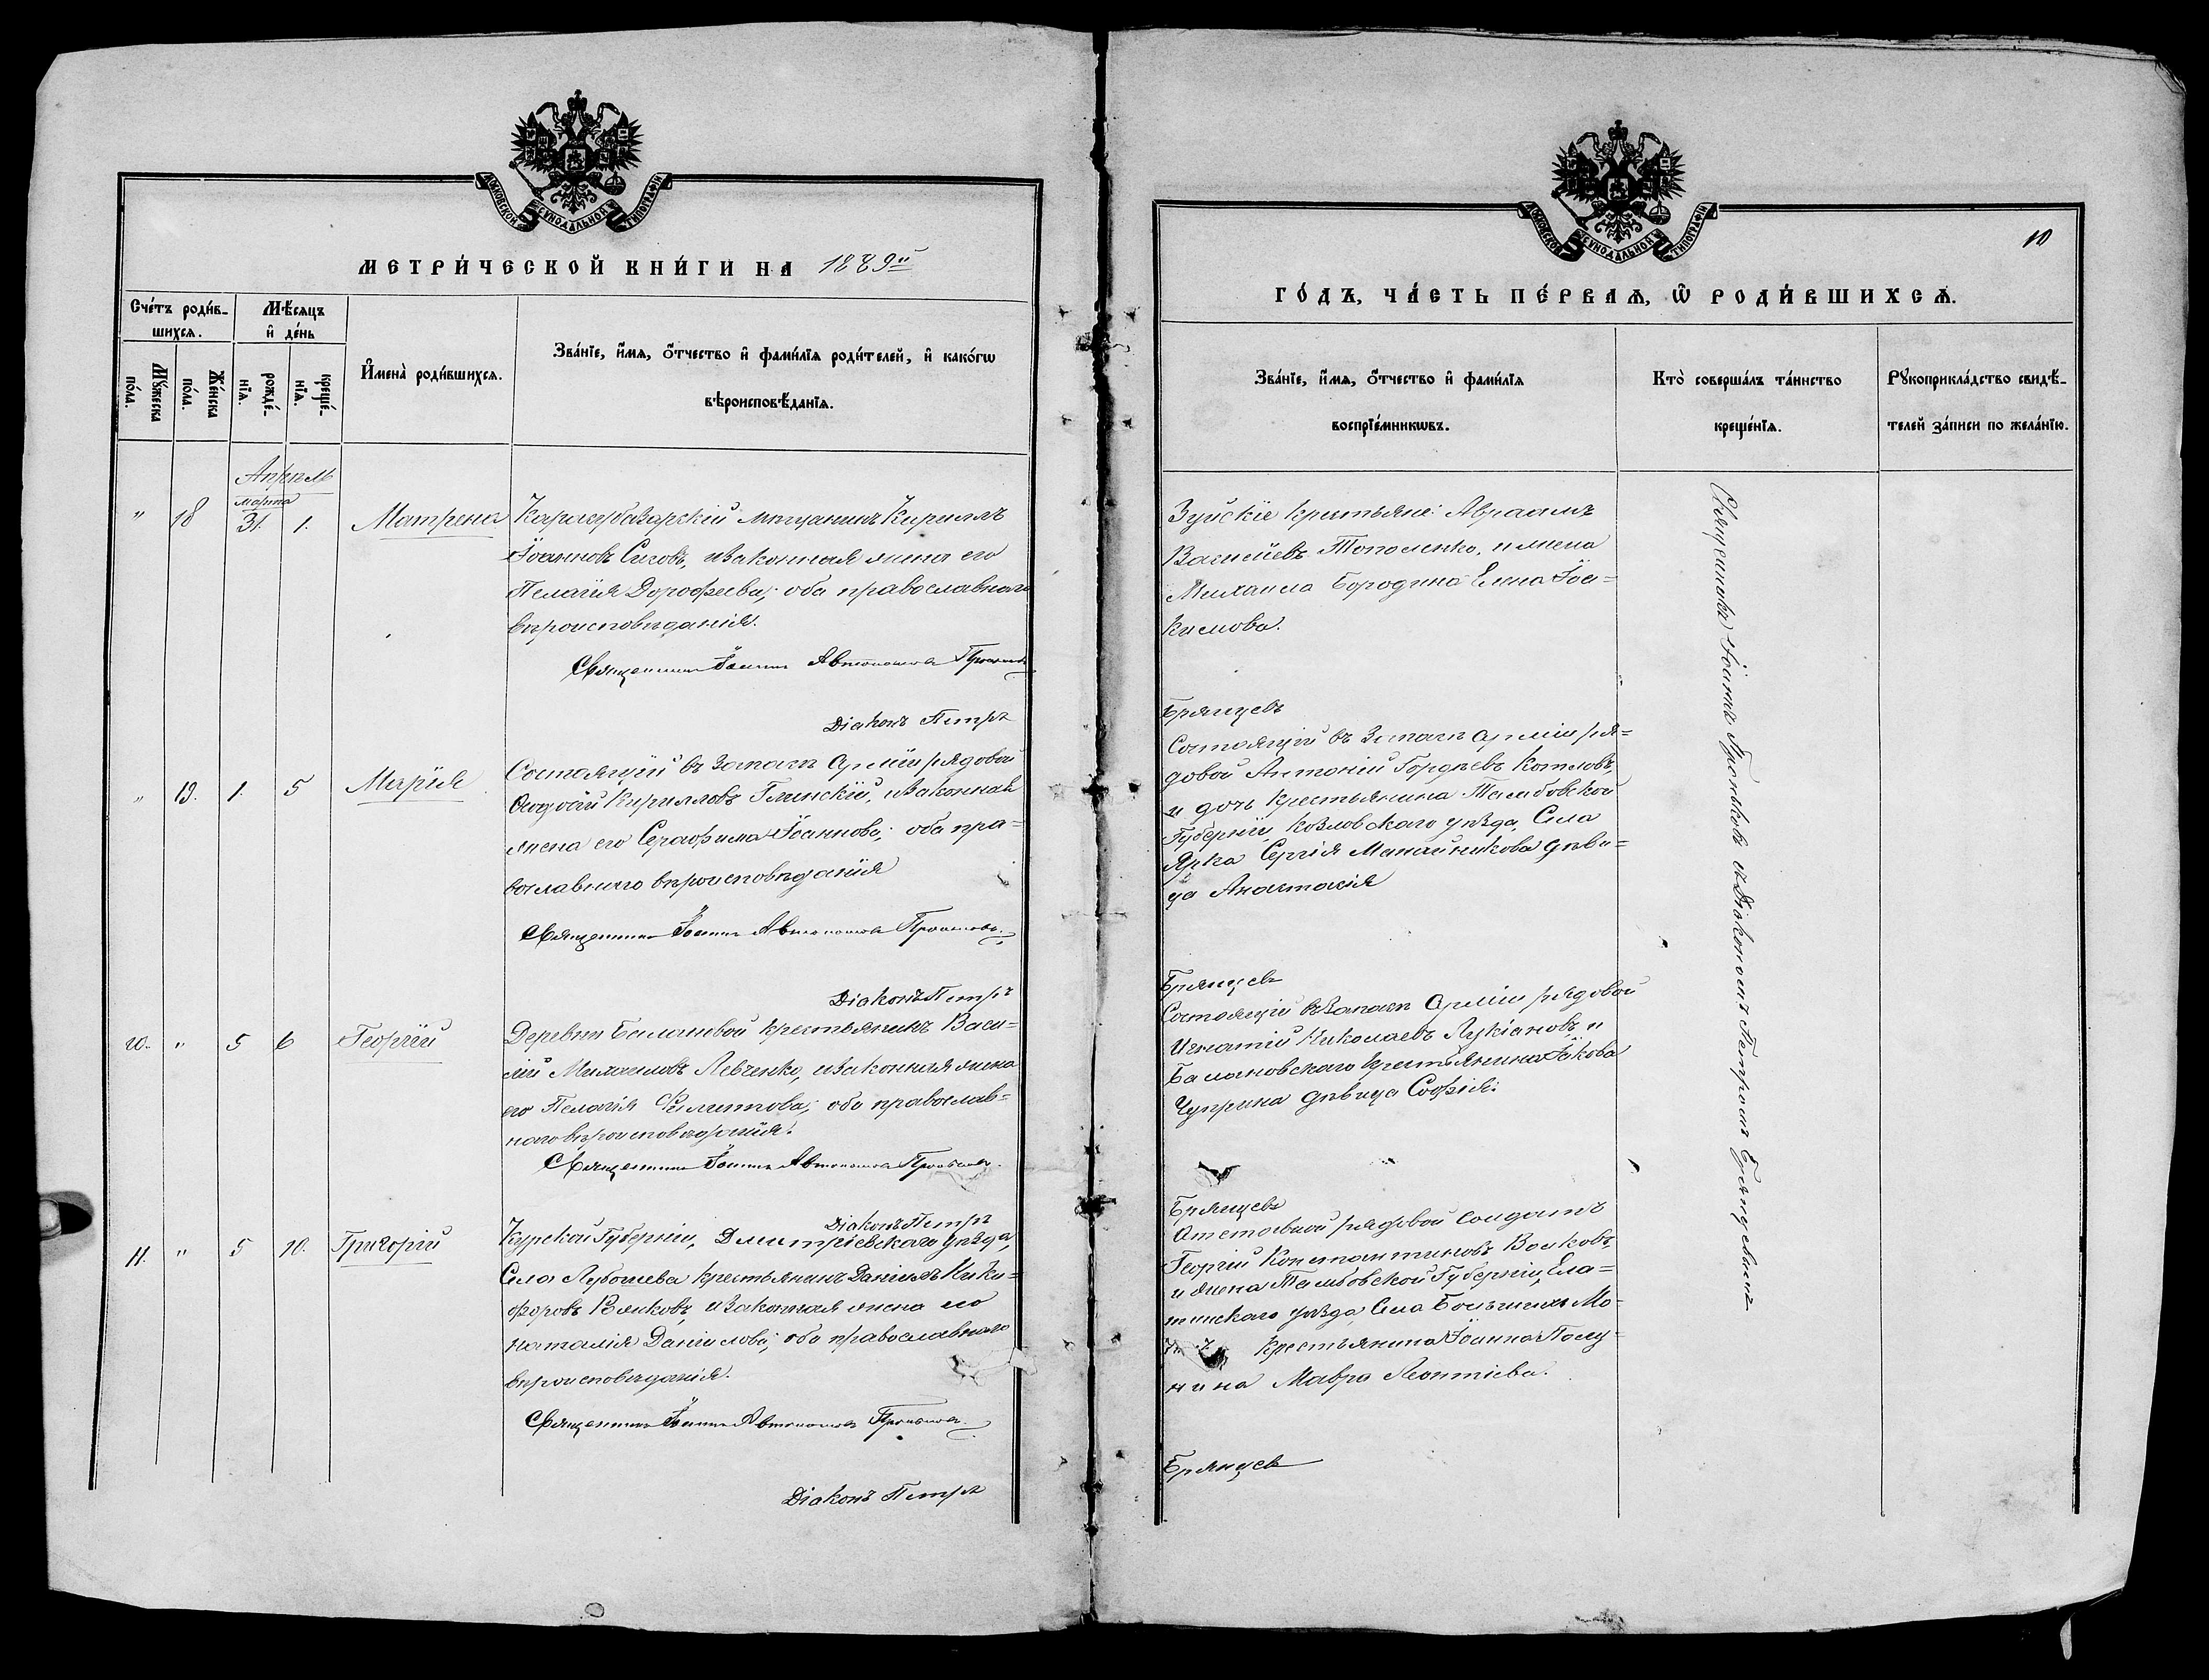 МОСКОВСКОЙ СѴНОДАЛЬНОЙ ТИПОГРАФІИ
МЕТРИ́ЧЕСКОЙ КНИ́ГИ НА 1889й
Сче́тъ роди́в-
шихся.
Мѣ́сяцъ
и҆ де́нь
Мꙋ́жеска
по́ла.
Же́нска
по́ла.
рожде́-
нїѧ.
креще́-
нїѧ.
И҆мена̀ роди́вшихсѧ.
Зва́нїе, и҆́мѧ, о҆́тчество и҆ фами́лїѧ роди́телей, и҆ како́гѡ
вѣроисповѣ́данїѧ.
Апрѣль
марта
" 18 31. 1. Матрена
Карасубазарскій мѣщанинъ Кириллъ
Іоанновъ Сиговъ, и законная жена его
Пелагія Дорофеева; оба православнаго
вѣроисповѣданія.
Священникъ Іоаннъ Автономовъ
Діаконъ Петръ
" 19. 1. 5 Марія
Состоящій въ запасѣ арміи рядовой
Кирилловъ Глинскій, и законная
жена его Серафима Іоаннова; оба пра=
вославнаго вѣроисповѣданія
Священникъ Іоаннъ Автономовъ
Діаконъ Петръ
10. " 5 6 Георгій
Деревни Балановой крестьянинъ Васи=
лій Михаиловъ Левченко, и законная жена
его Пелагія Филиппова; оба православ=
наго вѣроисповѣданія.
Священникъ Іоаннъ Автономовъ
Діаконъ Петръ
11. " 5 10. Григорій
Курской Губерніи, Дмитріевскаго уѣзда,
Села Лубошева крестьянинъ Даніилъ Ники=
форовъ Волковъ, и законная жена его
Наталія Даніилова; оба православнаго
вѣроисповѣданія.
Священникъ Іоаннъ Автономовъ
Діаконъ Петръ
МОСКОВСКОЙ СѴНОДАЛЬНОЙ ТИПОГРАФІИ
10
ГО́ДЪ, ЧА́СТЬ ПЕ́РВАѦ, Ѡ҆ РОДИ́ВШИХСѦ.
Зва́нїе, и҆́мѧ, о҆́тчество и҆ фами́лїѧ
воспрїе́мникѡвъ.
Кто̀ соверша́лъ та́инство
креще́нїѧ.
Рꙋкоприкла́дство свидѣ́-
телей за́писи по жела́нїю.
Зуйскіе крестьяне: Авраамъ
Васильевъ Тополенко, и жена
Михаила Бородина Елена Іоа=
кимова.
Брянцевъ
Состоящій въ запасѣ арміи ря=
довой Антоній Гордѣевъ Котловъ,
и дочь крестьянина Тамбовской
Губерніи, Козловскаго уѣзда, Села
Ярка Сергія Манайникова дѣви=
ца Анастасія
Брянцевъ
Состоящій въ запасѣ арміи рядовой
Игнатій Николаевъ Лукіановъ, и
Балановскаго крестьянина Іакова
Чуприна дѣвица Софія.
Брянцевъ
Отставной рядовой солдатъ
Георгій Константиновъ Волковъ,
и жена Тамбовской Губерніи, Ела=
тинскаго уѣзда, Села Большихъ Мо=
крестьянина Іоанна Полу=
нина Мавра Леонтіева.
Брянцевъ
Священникъ Іоаннъ съ Діакономъ Петромъ Брянцевымъ